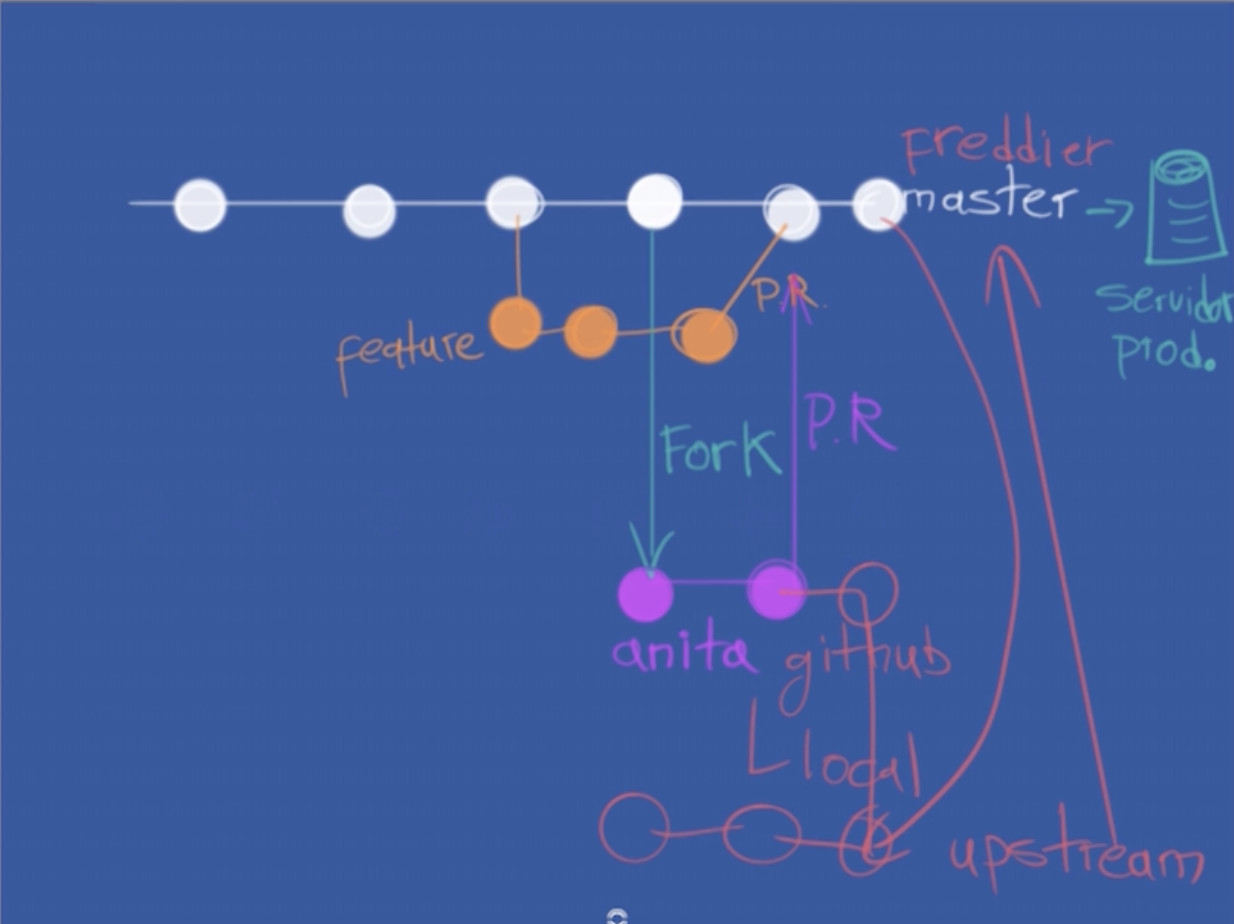 Freddier
master
servidor
prod.
P.R.
feature
P.R
Fork
anita
github
local
upstream